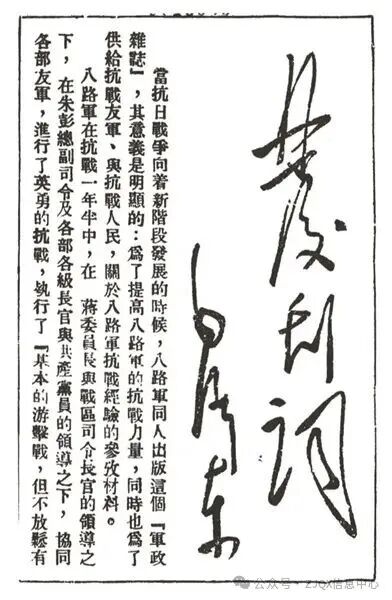 發刊詞
毛澤東
當抗日戰爭向着新階段發展的時候，八路軍同人出版這個『軍政
雜誌』，其意義是明顯的：爲了提高八路軍的抗戰力量，同時也爲了
供給抗戰友軍、與抗戰人民，關於八路軍抗戰經驗的參攷材料。
八路軍在抗戰一年半中，在　蔣委員長與戰區司令長官的領導之
下，在朱彭總副司令及各部各級長官與共產黨員的領導之下，協同
各部友軍，進行了英勇的抗戰，執行了『基本的游擊戰，但不放鬆有
公众号 · ZJQX信息中心